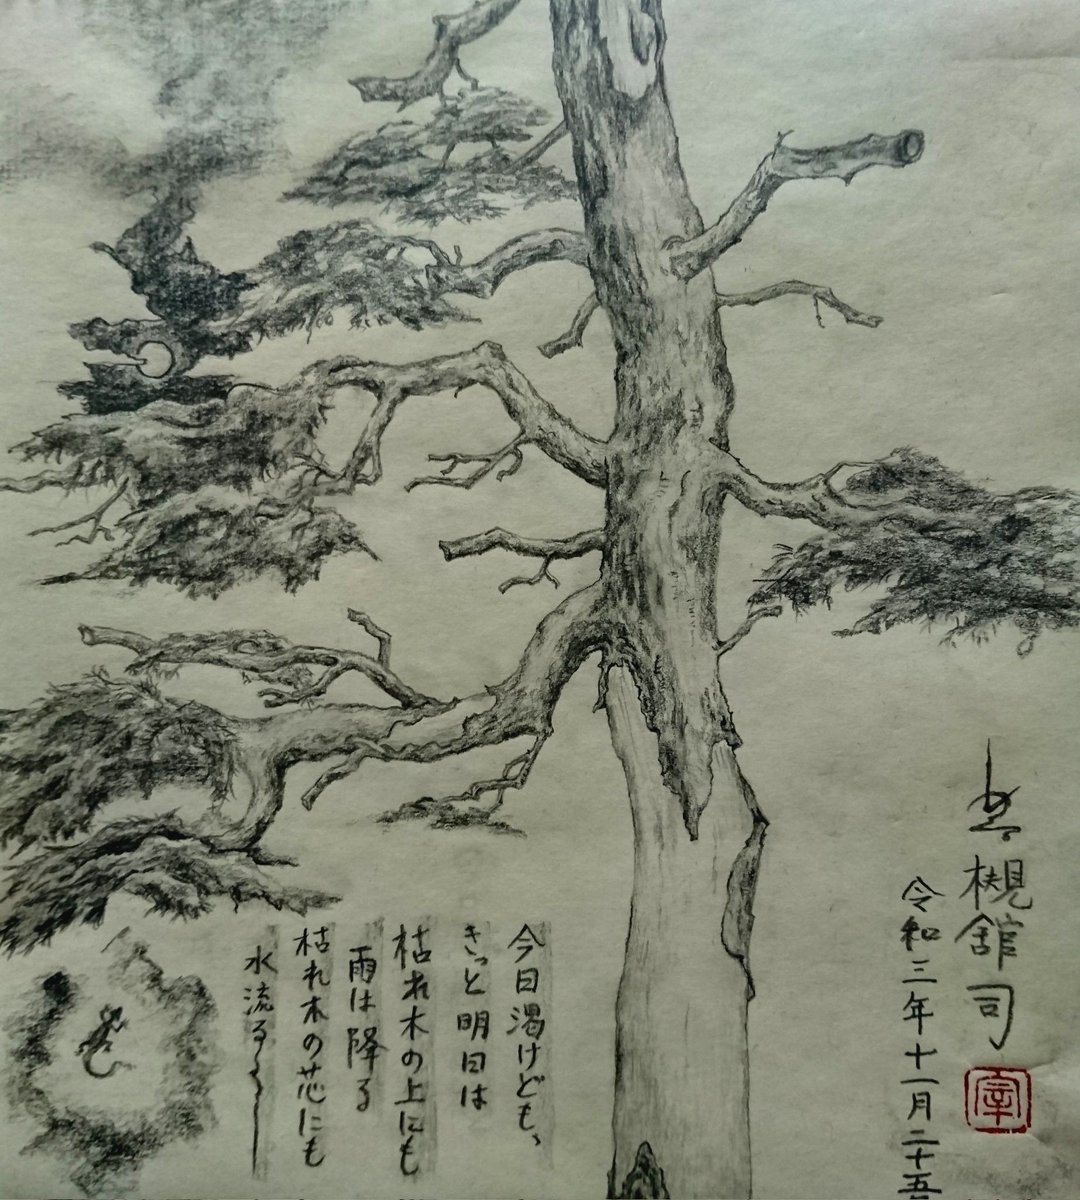 槻舘司
令和三年十一月二十五
今日渇けども、
きっと明日は
枯れ木の上にも
雨は降る
枯れ木の芯にも
水流る〜